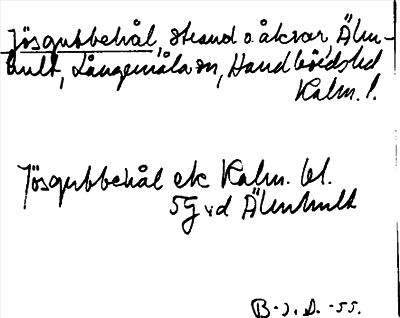 Jösgubbehål, strand o. åkrar, Älm-
hult, Långemåla sn, Handbörds hd
Kalm. l.
Jösgubbehål ek Kalm. bl.
5G vid Älmhult
B-j. D. -55.